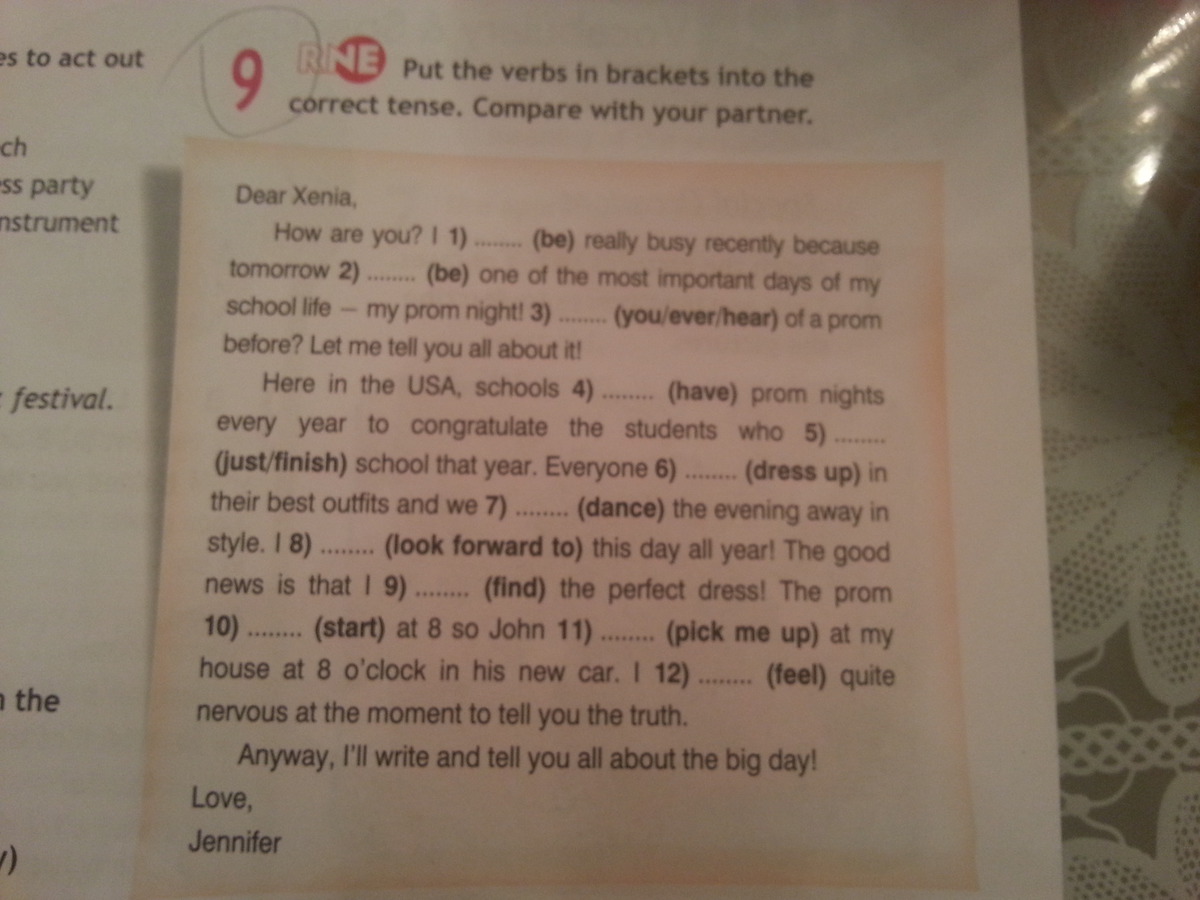 es to act out
ch
ss party
nstrument
festival.
n the
9 RNE Put the verbs in brackets into the
correct tense. Compare with your partner.
Dear Xenia,
How are you? I 1) ........ (be) really busy recently because
tomorrow 2) ........ (be) one of the most important days of my
school life – my prom night! 3) ........ (you/ever/hear) of a prom
before? Let me tell you all about it!
Here in the USA, schools 4) ........ (have) prom nights
every year to congratulate the students who 5) ........
(just/finish) school that year. Everyone 6) ........ (dress up) in
their best outfits and we 7) ........ (dance) the evening away in
style. I 8) ........ (look forward to) this day all year! The good
news is that I 9) ........ (find) the perfect dress! The prom
10) ........ (start) at 8 so John 11) ........ (pick me up) at my
house at 8 o'clock in his new car. I 12) ........ (feel) quite
nervous at the moment to tell you the truth.
Anyway, I'll write and tell you all about the big day!
Love,
Jennifer